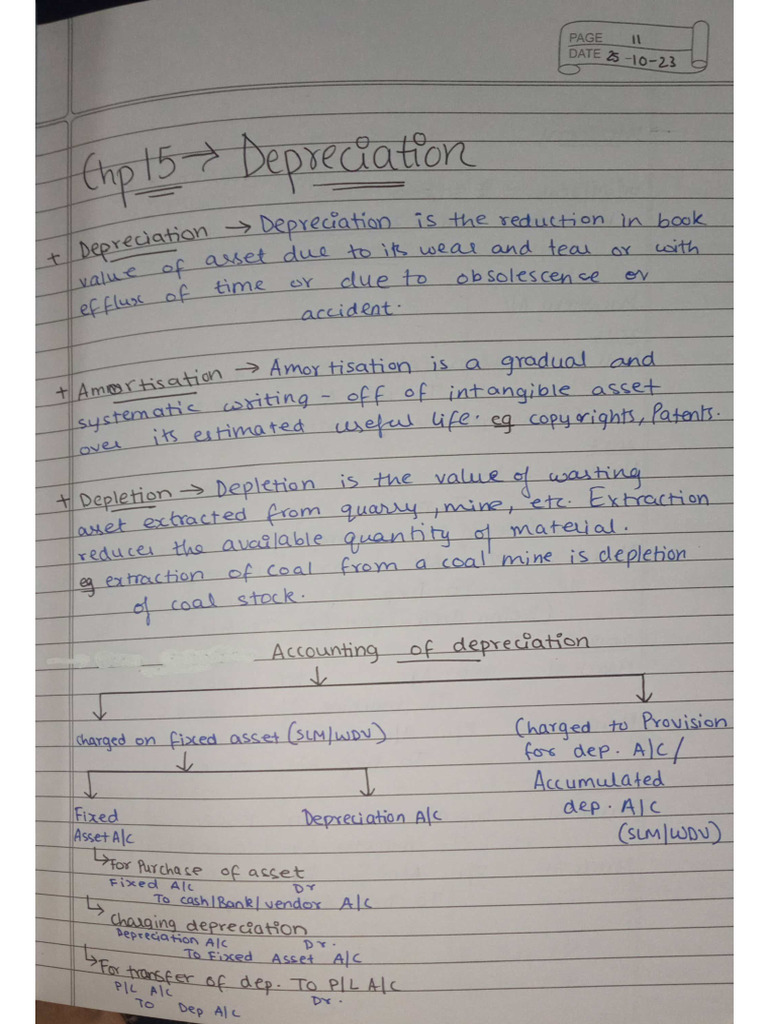 PAGE 11
DATE 25-10-23
Chp 15 → Depreciation
+ Depreciation → Depreciation is the reduction in book
value of asset due to its wear and tear or with
efflux of time or due to obsolescence or
accident.
+ Amortisation → Amortisation is a gradual and
systematic writing - off of intangible asset
over its estimated useful life. eg copyrights, Patents.
+ Depletion → Depletion is the value of wasting
asset extracted from quarry, mine, etc. Extraction
reduces the available quantity of material.
eg extraction of coal from a coal mine is depletion
of coal stock.
Accounting of depreciation
charged on fixed asset (SLM/WDV)
Charged to Provision
for dep. A/C /
Accumulated
dep. A/C
(SLM/WDV)
Fixed
Asset A/C
Depreciation A/C
↳ For Purchase of asset
Fixed A/C Dr
To cash/Bank/vendor A/C
↳ Charging depreciation
Depreciation A/C Dr.
To Fixed Asset A/C
↳ For transfer of dep. To P/L A/C
P/L A/C Dr.
To Dep A/C